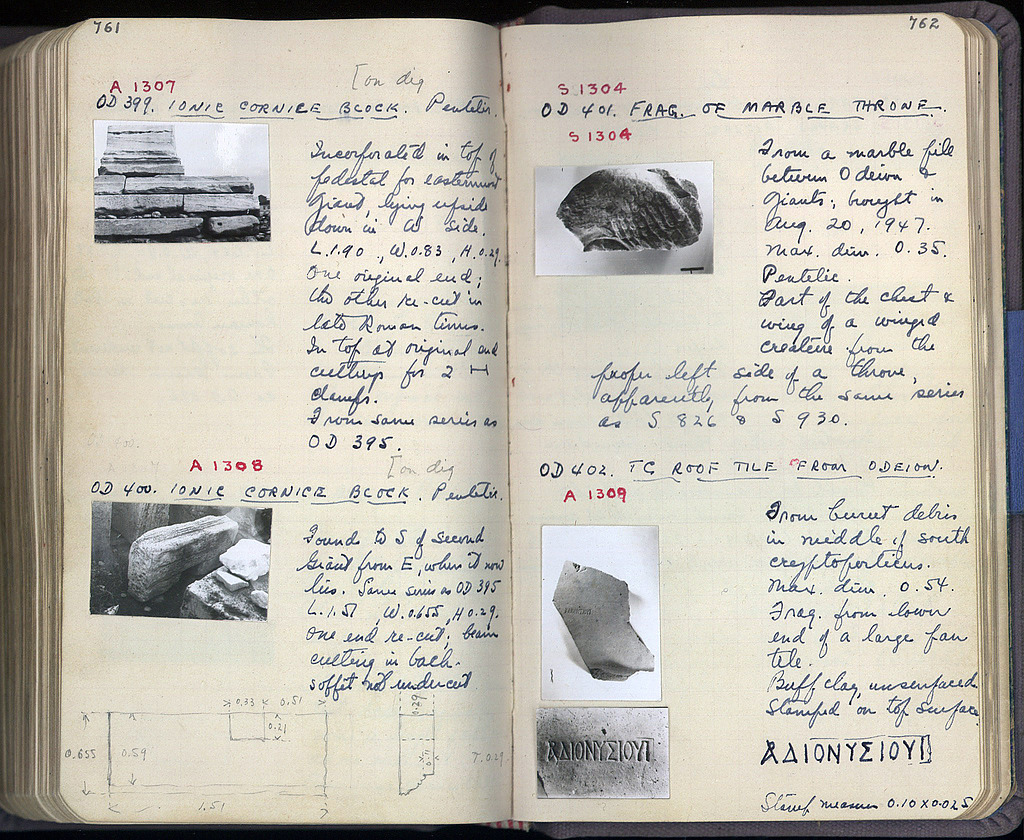 761
A 1307
[on dig
OD 399. IONIC CORNICE BLOCK. Pentelic.
Incorporated in top of
pedestal for easternmost
Giant lying upside
down in W side.
L. 1.90, W. 0.83, H. 0.29.
One original end;
the other re-cut in
late Roman times.
In top at original end
cuttings for 2 H
clamps.
From same series as
OD 395.
A 1308
[on dig
OD 400. IONIC CORNICE BLOCK. Pentelic.
Found to S of second
Giant from E, where it now
lies. Same series as OD 395
L. 1.51 W. 0.655, H 0.29.
One end re-cut; beam
cutting in back.
soffit not undercut.
0.33 0.51
0.21
0.655
0.59
1.51
0.29
0.11
T. 0.29
762
S 1304
OD 401. FRAG. OF MARBLE THRONE.
S 1304
From a marble pile
between Odeion &
Giants; brought in
Aug. 20, 1947.
Max. dim. 0.35.
Pentelic.
Part of the chest &
wing of a winged
creature from the
proper left side of a throne,
apparently from the same series
as S 826 & S 930.
OD 402. TC ROOF TILE FROM ODEION.
A 1309
From burnt debris
in middle of south
cryptoporticus.
Max. dim. 0.54.
Frag. from lower
end of a large pan
tile.
Buff clay, unsurfaced.
Stamped on top surface
ΑΔΙΟΝΥΣΙΟΥ
ΑΔΙΟΝΥΣΙΟΥ
Stamp measures 0.10 x 0.025